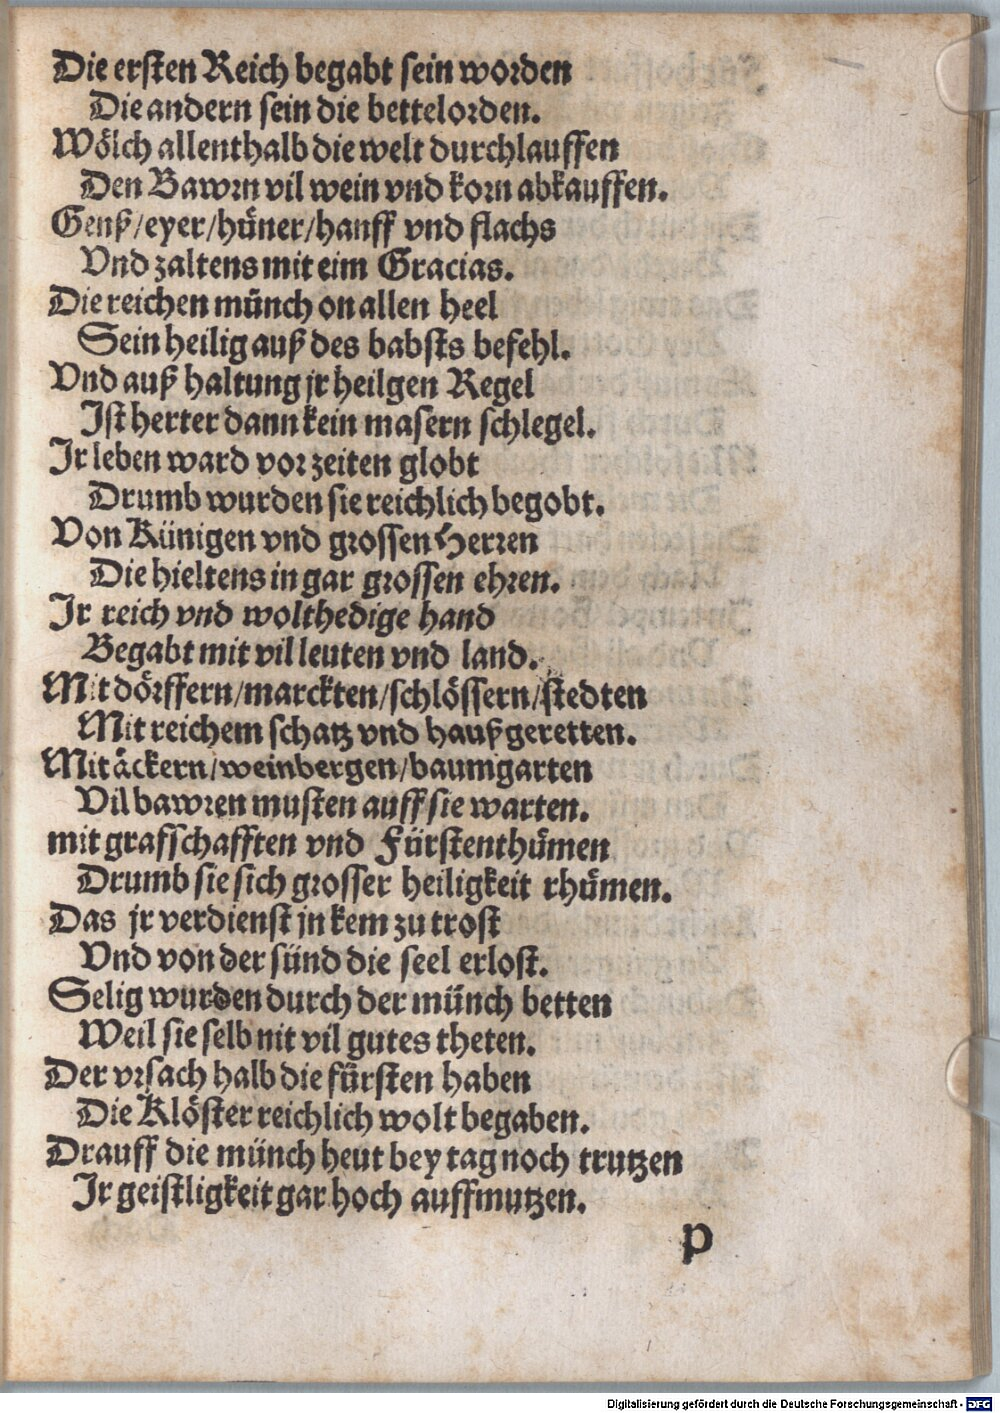 Die ersten Reich begabt sein worden
Die andern sein die bettelorden.
Wölch allenthalb die welt durchlauffen
Den Bawrn vil wein vnd korn abkauffen.
Genß/eyer/hüner/hanff vnd flachs
Vnd zaltens mit eim Gracias.
Die reichen münch on allen heel
Sein heilig auß des babsts befehl.
Vnd auß haltung jr heilgen Regel
Ist herter dann kein masern schlegel.
Ir leben ward vor zeiten globt
Drumb wurden sie reichlich begobt.
Von Künigen vnd grossen Herren
Die hieltens in gar grossen ehren.
Ir reich vnd wolthedige hand
Begabt mit vil leuten vnd land.
Mit dörffern/marckten/schlössern/stedten
Mit reichem schatz vnd haußgeretten.
Mit äckern/weinbergen/baumgarten
Vil bawren musten auff sie warten.
mit grafschafften vnd Fürstenthümen
Drumb sie sich grosser heiligkeit rhümen.
Das jr verdienst jn kem zu trost
Vnd von der sünd die seel erlost.
Selig wurden durch der münch betten
Weil sie selb nit vil gutes theten.
Der vrsach halb die fürsten haben
Die Klöster reichlich wolt begaben.
Drauff die münch heut bey tag noch trutzen
Ir geistligkeit gar hoch auffmutzen.
p
Digitalisierung gefördert durch die Deutsche Forschungsgemeinschaft - DFG